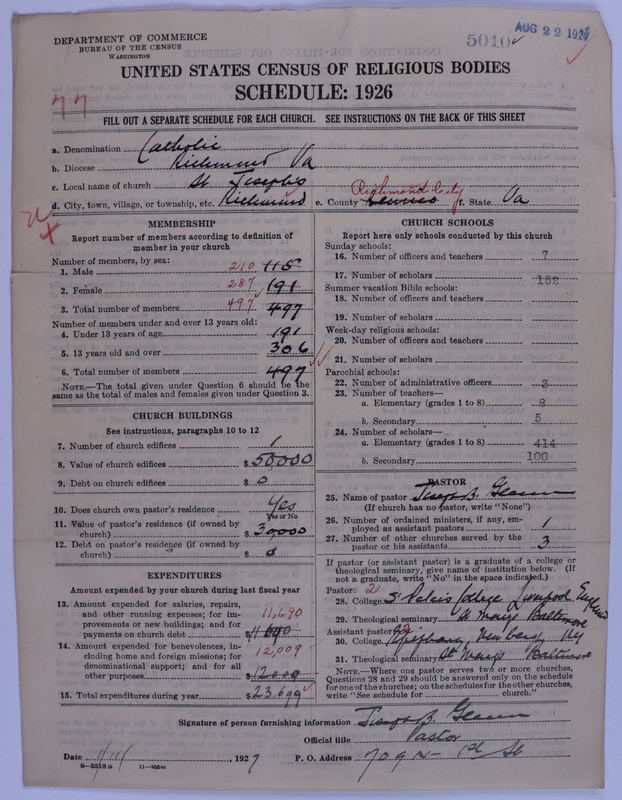 DEPARTMENT OF COMMERCE
BUREAU OF THE CENSUS
WASHINGTON
5010
AUG 22 192
UNITED STATES CENSUS OF RELIGIOUS BODIES
SCHEDULE: 1926
77
FILL OUT A SEPARATE SCHEDULE FOR EACH CHURCH. SEE INSTRUCTIONS ON THE BACK OF THIS SHEET
a. Denomination Catholic
b. Diocese Richmond Va
c. Local name of church St Joseph's
d. City, town, village, or township, etc. Richmond e. County Henrico Richmond City f. State Va
MEMBERSHIP
Report number of members according to definition of
member in your church
Number of members, by sex:
1. Male 210 115
2. Female 287 191
3. Total number of members 497 497
Number of members under and over 13 years old:
4. Under 13 years of age 191
5. 13 years old and over 306
6. Total number of members 497
NOTE.—The total given under Question 6 should be the
same as the total of males and females given under Question 3.
CHURCH BUILDINGS
See instructions, paragraphs 10 to 12
7. Number of church edifices 1
8. Value of church edifices $ 50,000
9. Debt on church edifices $ 0
10. Does church own pastor's residence Yes
Yes or No
11. Value of pastor's residence (if owned by
church) $ 30000
12. Debt on pastor's residence (if owned by
church) $ 0
EXPENDITURES
Amount expended by your church during last fiscal year
13. Amount expended for salaries, repairs,
and other running expenses; for im-
provements or new buildings; and for
payments on church debt 11,690 $ 11690
14. Amount expended for benevolences, in-
cluding home and foreign missions; for
denominational support; and for all
other purposes 12,009 $ 12009
15. Total expenditures during year $ 23,699
CHURCH SCHOOLS
Report here only schools conducted by this church
Sunday schools:
16. Number of officers and teachers 7
17. Number of scholars 152
Summer vacation Bible schools:
18. Number of officers and teachers
19. Number of scholars
Week-day religious schools:
20. Number of officers and teachers
21. Number of scholars
Parochial schools:
22. Number of administrative officers 3
23. Number of teachers—
a. Elementary (grades 1 to 8) 8
b. Secondary 5
24. Number of scholars—
a. Elementary (grades 1 to 8) 414
b. Secondary 100
PASTOR
25. Name of pastor Joseph B. Glenn
(If church has no pastor, write "None")
26. Number of ordained ministers, if any, em-
ployed as assistant pastors 1
27. Number of other churches served by the
pastor or his assistants 3
If pastor (or assistant pastor) is a graduate of a college or
theological seminary, give name of institution below. (If
not a graduate, write "No" in the space indicated.)
Pastor: 2
28. College College England
29. Theological seminary St Marys Baltimore
Assistant pastor:
30. College
31. Theological seminary St Marys Baltimore
NOTE.—Where one pastor serves two or more churches,
Questions 28 and 29 should be answered only on the schedule
for one of the churches; on the schedules for the other churches,
write "See schedule for church."
Signature of person furnishing information Joseph B. Glenn
Official title Pastor
Date , 1927 P. O. Address 709 N- 1st St
8—3518 a 11—9054